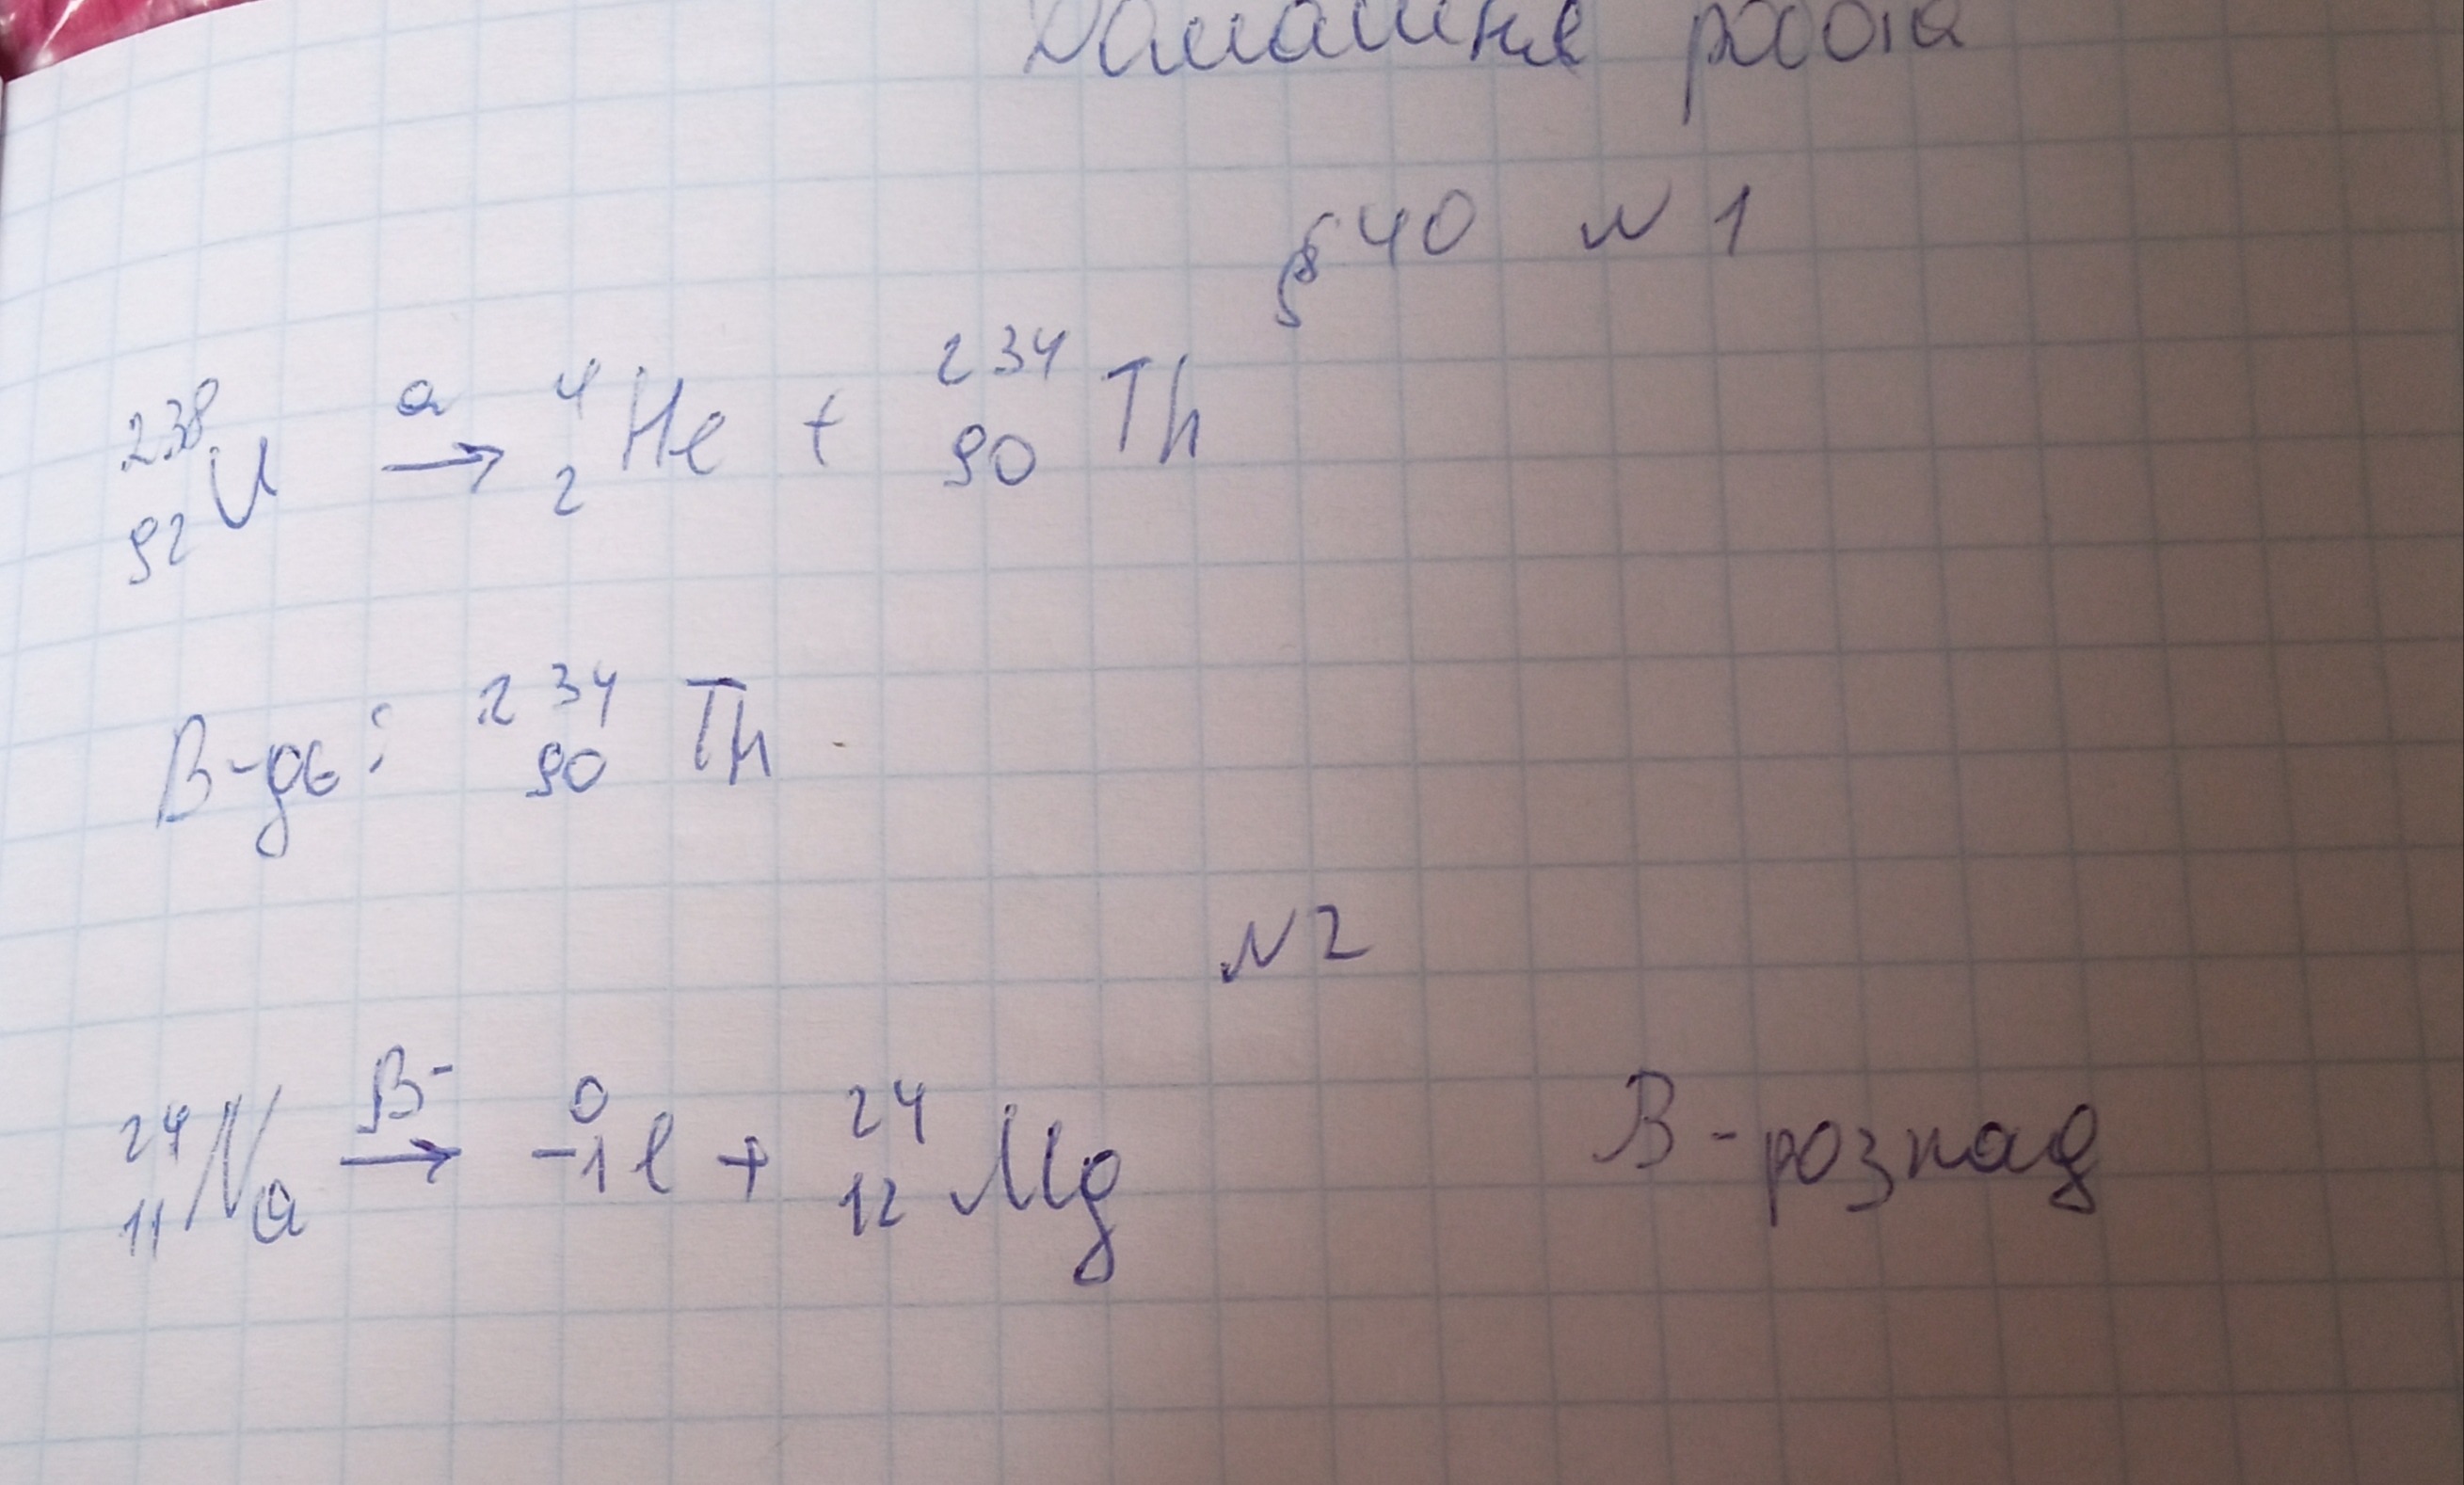 Домашня робота
§40 N1
²³⁸₉₂U →ᵃ ⁴₂He + ²³⁴₉₀Th
В-дь: ²³⁴₉₀Th
N2
²⁴₁₁Na →ᴮ⁻ ⁰₋₁e + ²⁴₁₂Mg В-розпад